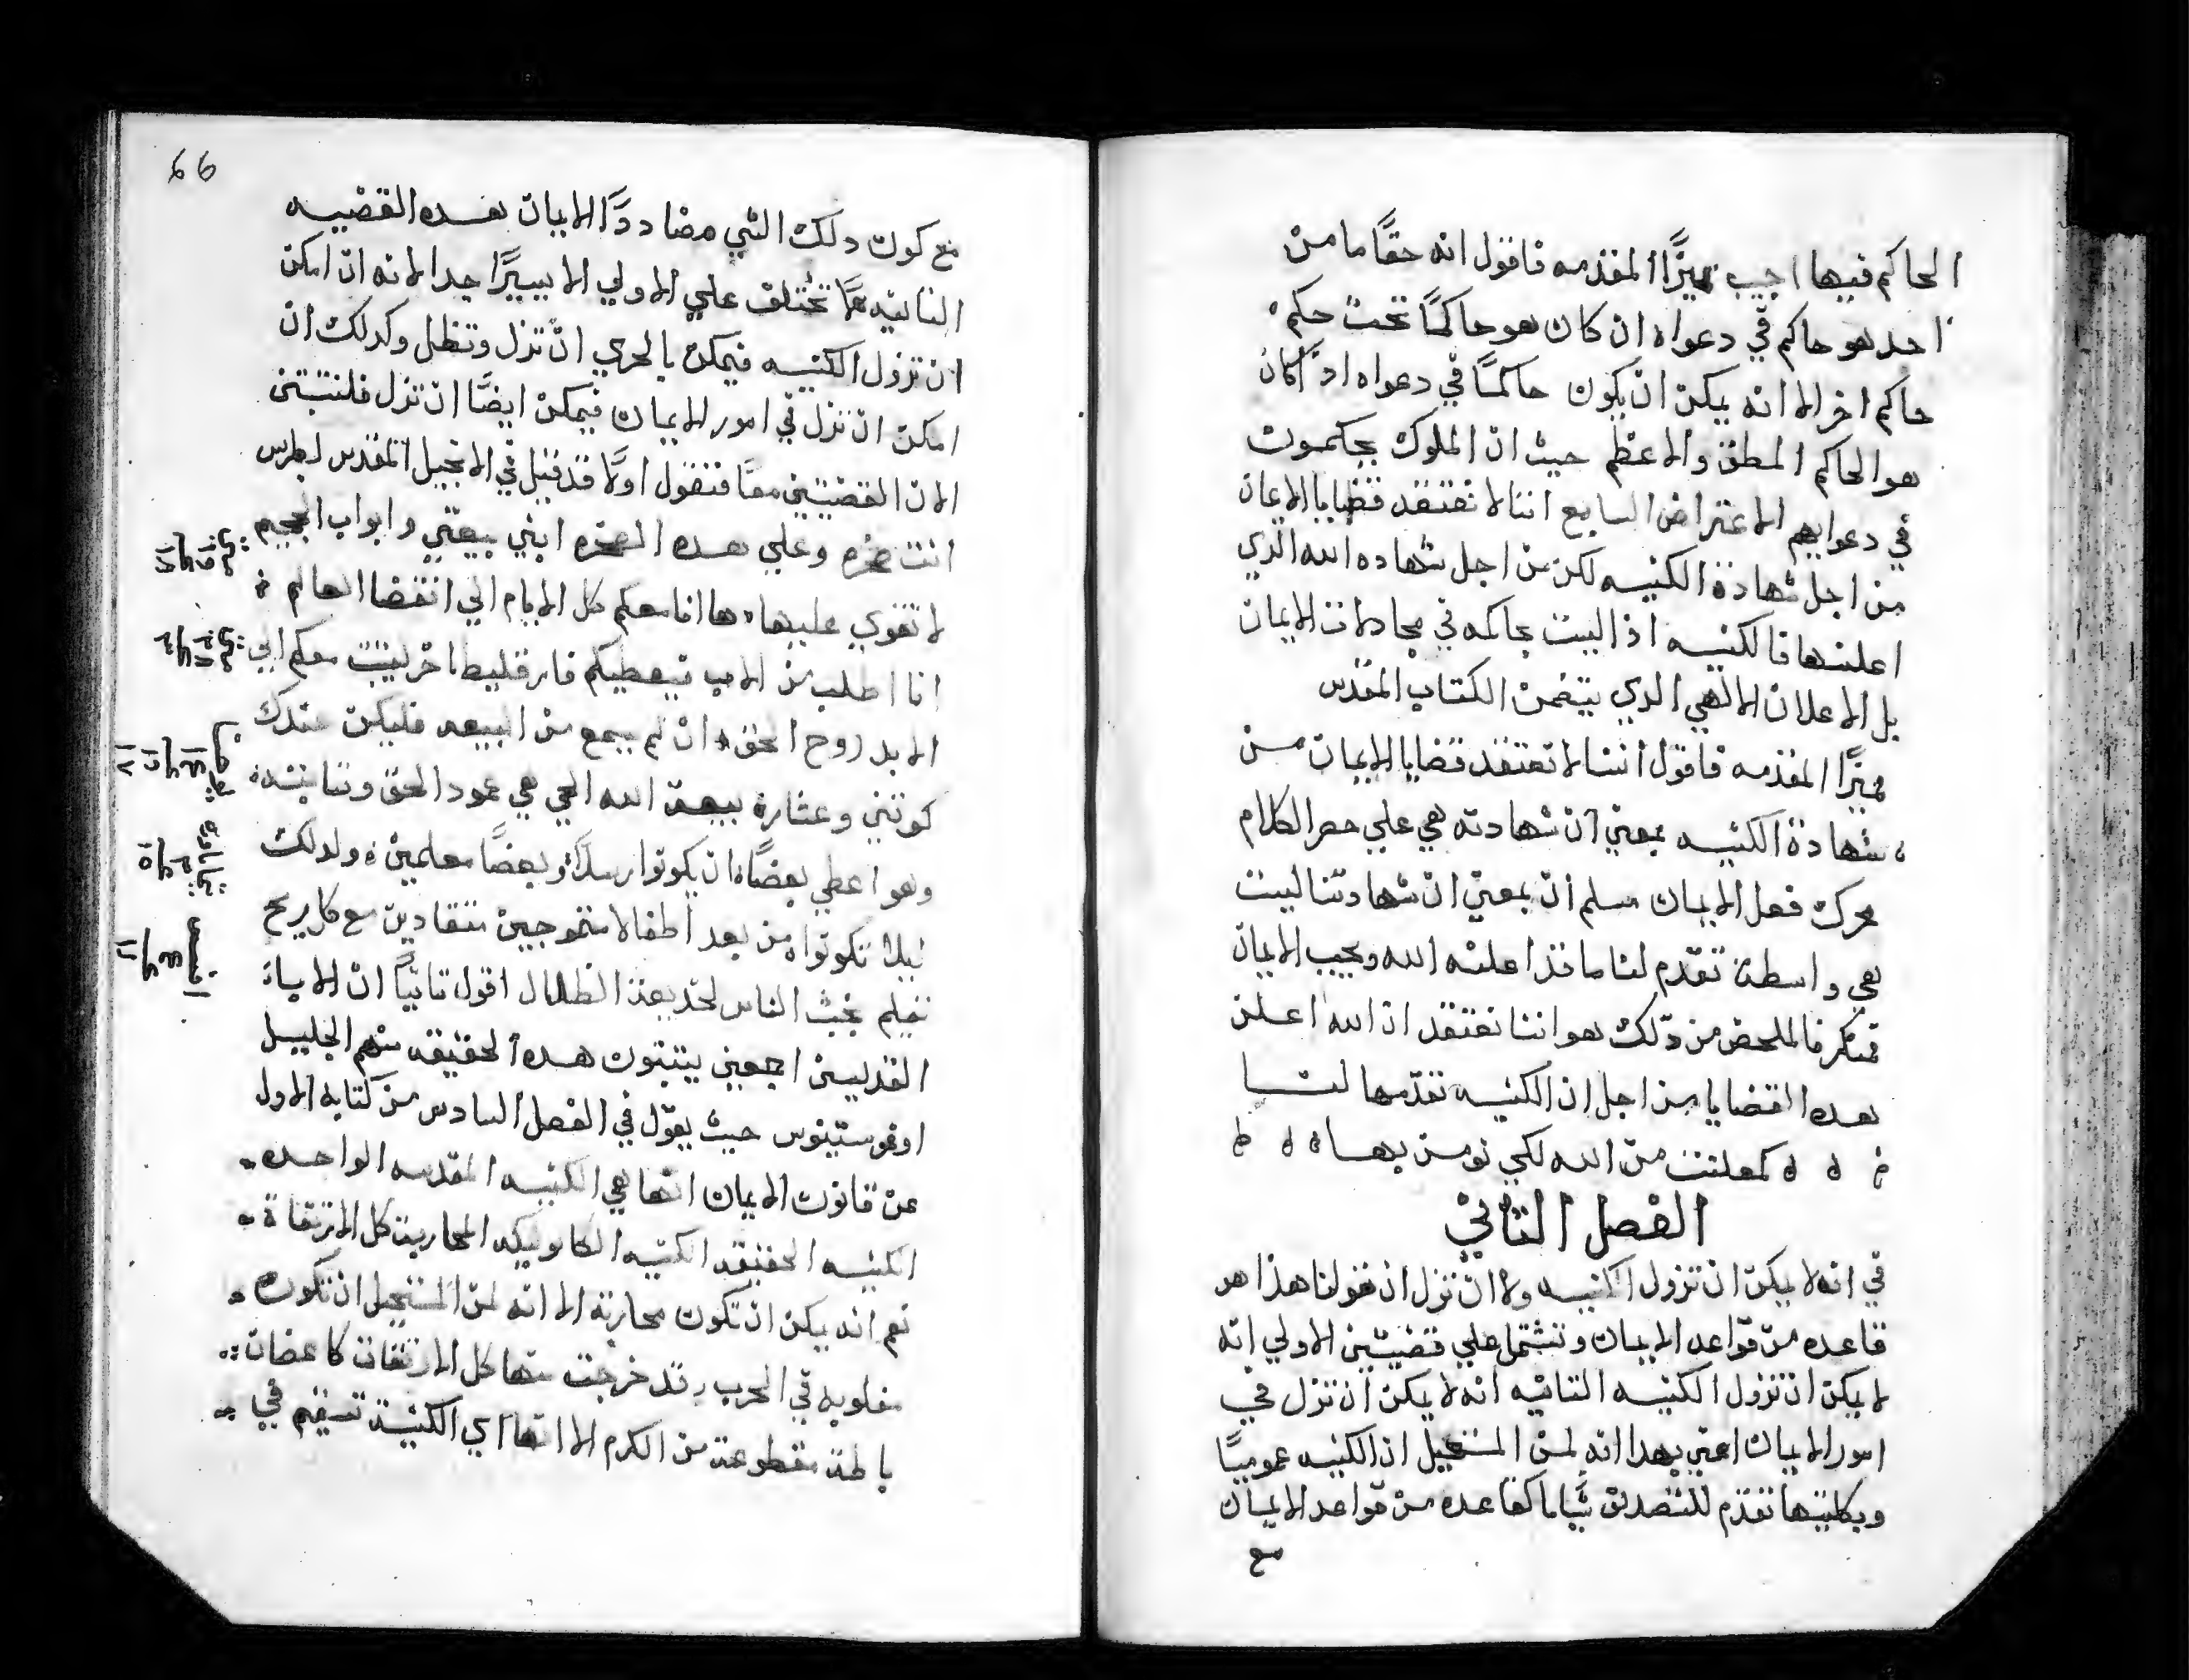 الحاكم فيها اجيب مميزًا المقدمه فاقول انه حقًا ما من
احد هو حاكم في دعواه ان كان هو حاكمًا تحت حكم
حاكم اخر الا انه يمكن ان يكون حاكمًا في دعواه اذا كان
هو الحاكم المطلق والاعظم حيث ان الملوك يحكمون
في دعوايهم الاعتراض السابع اننا لا نعتقد قضايا الايمان
من اجل شهادة الكنيسه لكن من اجل شهاده الله الذي
اعلنها فالكنيسه اذا ليست بحاكمه في مجادلات الايمان
بل الاعلان الالهي الدي يتضمن الكتاب المقدس
مميزًا المقدمه فاقول اننا لا نعتقد قضايا الايمان مـن
شهادة الكنيسه بمعني ان شهادته هي علي حصر الكلام
محرك فعل الايمان مسلم ان بمعني ان شهادتنا ليست
هي واسطة تقدم لنا ما قد اعلنه الله ويجب الايمان
فمنكر فالملخص من دلك هو اننا نعتقد ان الله اعلـن
هده القضايا من اجل ان الكنيسه تقدمها لنـــا
كمعلنت من الله لكي نومن بهــا
الفصل الثاني
في انه لا يمكن ان تزول الكنيسه ولا ان تزل ان قولنا هذا هو
قاعده من قواعد الايمان وتشتمل علي قضيتين الاولي انه
لا يمكن ان تزول الكنيسه الثانيه انه لا يمكن ان تزل في
امور الايمان اعني بهدا انه لمن المستحيل ان الكنيسه عموميًا
وبكليتها تقدم للتصديق شيًا ما كقاعده من قواعد الايمان
مع
66
مع كون دلك الشي مضاددًا الايمان هـده القضيـه
الثانيه لا تختلف علي الاولي الا يسيرًا جدا لانه ان امكن
ان تزول الكنيسه فيمكن بالحري ان تزل وتظل وكدلك ان
امكن ان تزل في امور الايمان فيمكن ايضًا ان تزل فلنثبتن
الان القضيتين معًا فنقول اولًا قد قيل في الانجيل المقدس لبطرس
انت صخره وعلي هـده الصخره ابني بيعتي وابواب الجحيم
لا تقوي عليها ها انا معكم كل الايام الي انقضا العالم
انا اطلب من الاب فيعطيكم فارقليط اخر ليثبت معكم الي
الابد روح الحق ان لم يسمع من البيعه فليكن عندك
كوثني وعشار بيعة الله الحي هي عمود الحق وثباته
وهو اعطي بعضًا ان يكونوا رسلًا وبعضًا معلمين ولدلك
ليلا تكونوا من بعد اطفالا متموجين منقادين مع كل ريح
تعليم بخبث الناس لخديعة الظلال اقول ثانيًا ان الاباء
القديسين اجمعين يثبتون هـده الحقيقه منهم الجليـل
اوغوستينوس حيث يقول في الفصل السادس من كتابه الاول
عن قانون الايمان انها هي الكنيسه المقدسه الواحـده
الكنيسه الحقيقه الكنيسه الكاتوليكه المحاربة كل الارتقاة
نعم انه يمكن ان تكون محاربة الا انه لمن المستحيل ان تكون
مغلوبه في الحرب قد خرجت منها كل الارتقات كاغضان
باطلة مقطوعة من الكرم الا انها اي الكنيسة تستقيم في